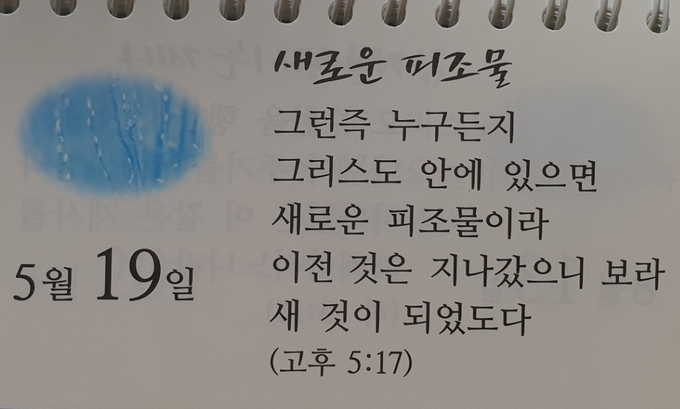 새로운 피조물
그런즉 누구든지
그리스도 안에 있으면
새로운 피조물이라
이전 것은 지나갔으니 보라
새 것이 되었도다
(고후 5:17)
5월 19일